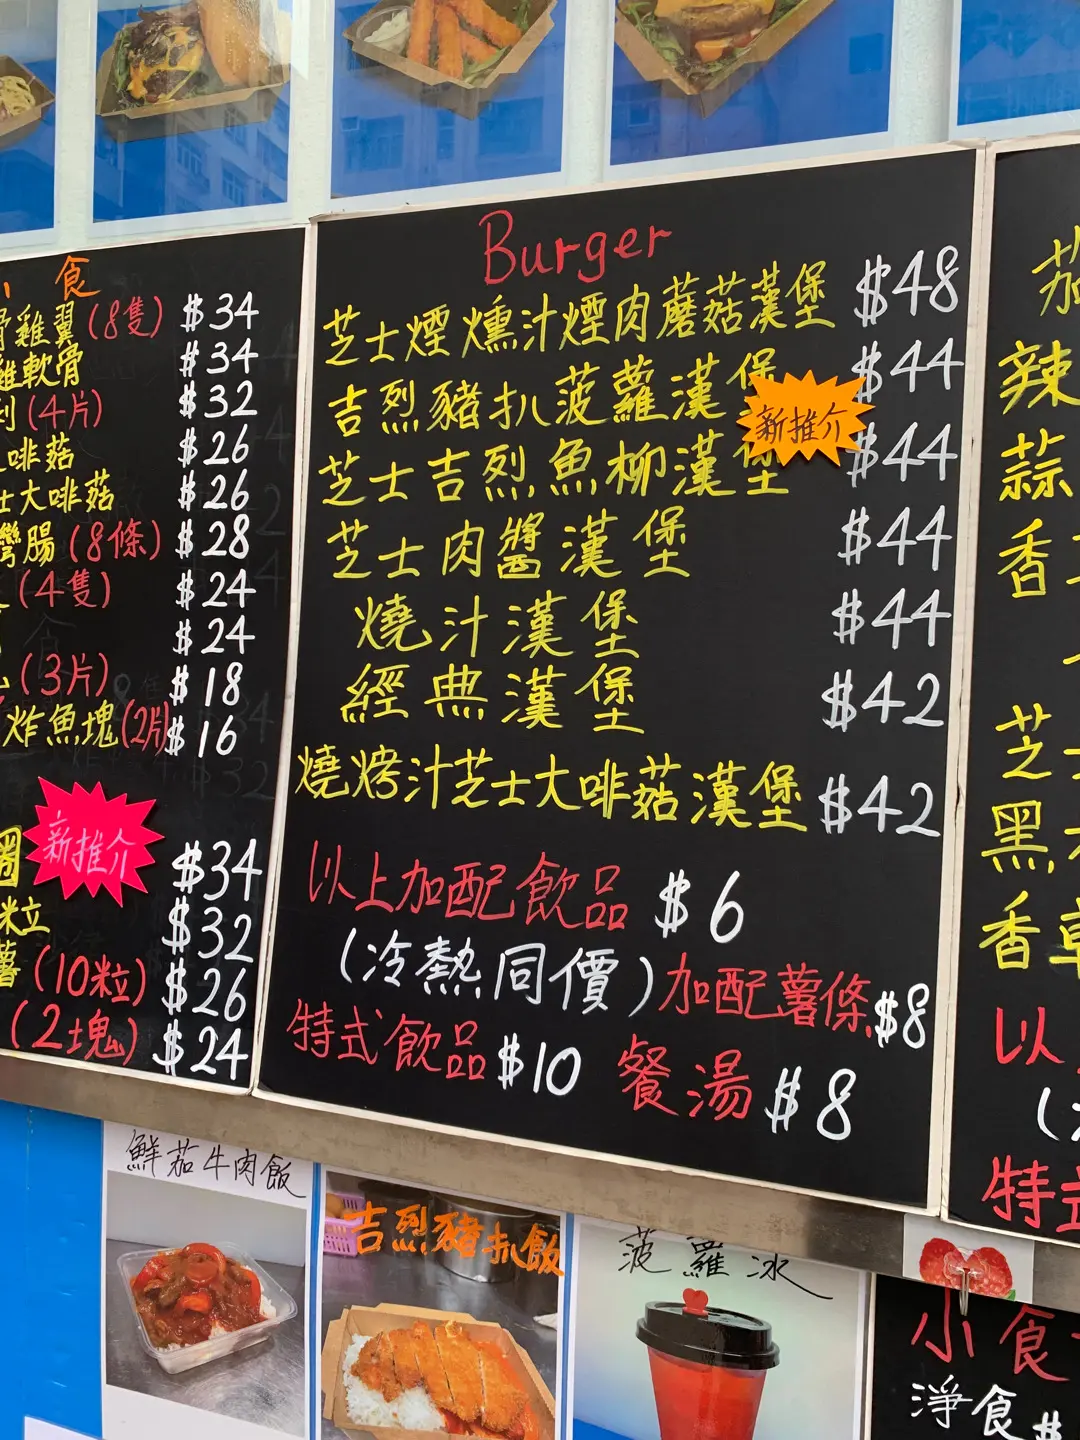 小食
骨雞翼(8隻) $34
雞軟骨 $34
(4片) $32
啡菇 $26
士大啡菇 $26
彎腸(8條) $28
(4隻) $24
$24
(3片) $18
炸魚塊(2片) $16
新推介
圈 $34
粒 $32
薯(10粒) $26
(2塊) $24
Burger
芝士煙燻汁煙肉蘑菇漢堡 $48
吉烈豬扒菠蘿漢堡 $44
新推介
芝士吉烈魚柳漢堡 $44
芝士肉醬漢堡 $44
燒汁漢堡 $44
經典漢堡 $42
燒烤汁芝士大啡菇漢堡 $42
以上加配飲品 $6
(冷熱同價)加配薯條 $8
特式飲品 $10 餐湯 $8
茄
辣
蒜
香
芝士
黑
香草
以上
(冷
特式
鮮茄牛肉飯
吉烈豬扒飯
菠蘿冰
小食
淨食 $